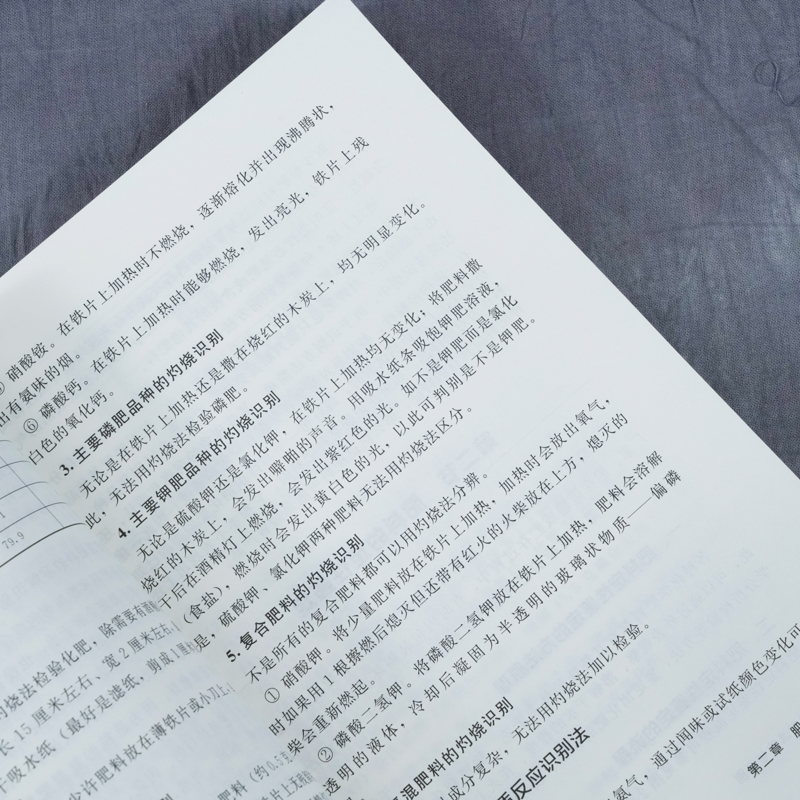 1
79.9
灼烧法检验化肥，除需要有酒精
长 15 厘米左右、宽 2 厘米左右
干吸水纸（最好是滤纸，剪成 1 厘米
少许肥料放在薄铁片或小刀上
肥料（约 0.5 克
硝酸铵。在铁片上加热时不燃烧，逐渐熔化并出现沸腾状，
出有氨味的烟。
⑥ 磷酸钙。在铁片上加热时能够燃烧，发出亮光，铁片上残
白色的氧化钙。
3. 主要磷肥品种的灼烧识别
无论是在铁片上加热还是撒在烧红的木炭上，均无明显变化。
此，无法用灼烧法检验磷肥。
4. 主要钾肥品种的灼烧识别
无论是硫酸钾还是氯化钾，在铁片上加热均无变化；将肥料撒
烧红的木炭上，会发出噼啪的声音。用吸水纸条吸饱钾肥溶液，
干后在酒精灯上燃烧，会发出紫红色的光。如不是钾肥而是氯化
（食盐），燃烧时会发出黄白色的光，以此可判别是不是钾肥。
是，硫酸钾、氯化钾两种肥料无法用灼烧法区分。
5. 复合肥料的灼烧识别
不是所有的复合肥料都可以用灼烧法分辨。
① 硝酸钾。将少量肥料放在铁片上加热，加热时会放出氧气，
时如果用 1 根擦燃后熄灭但还带有红火的火柴放在上方，熄灭的
柴会重新燃起。
② 磷酸二氢钾。将磷酸二氢钾放在铁片上加热，肥料会溶解
透明的液体，冷却后凝固为半透明的玻璃状物质——偏磷
混肥料的灼烧识别
成分复杂，无法用灼烧法加以检验。
反应识别法
氨气，通过闻味或试纸颜色变化可
第二章 肥